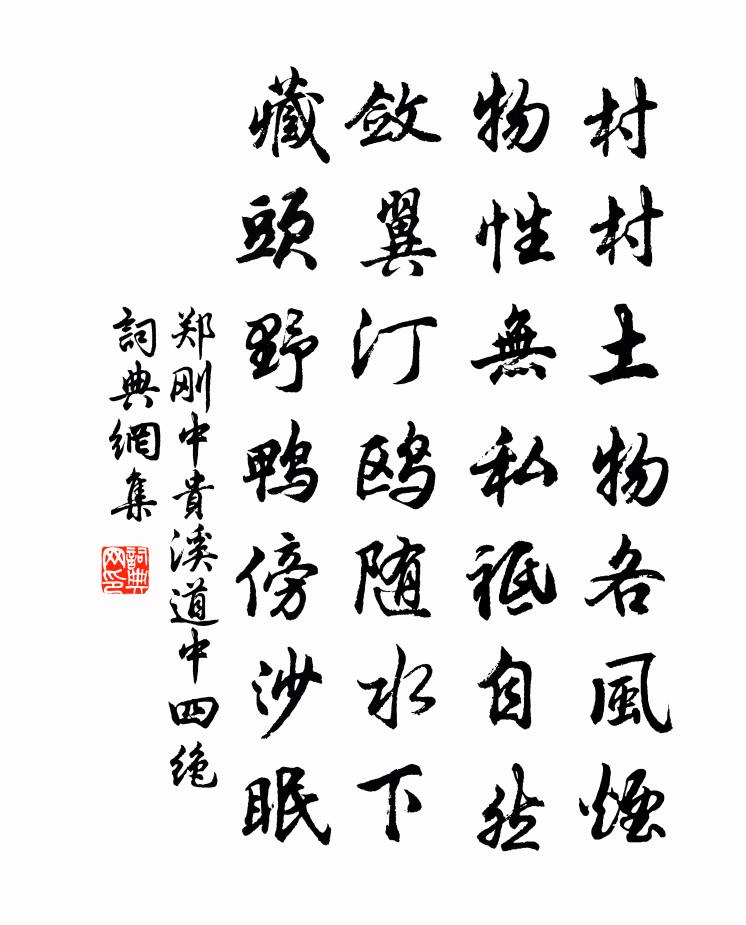 村村土物各風煙
物性無私祗自然
斂翼汀鷗随水下
藏頭野鴨傍沙眠
郑刚中貴溪道中四绝
詞典網集
詞典网印